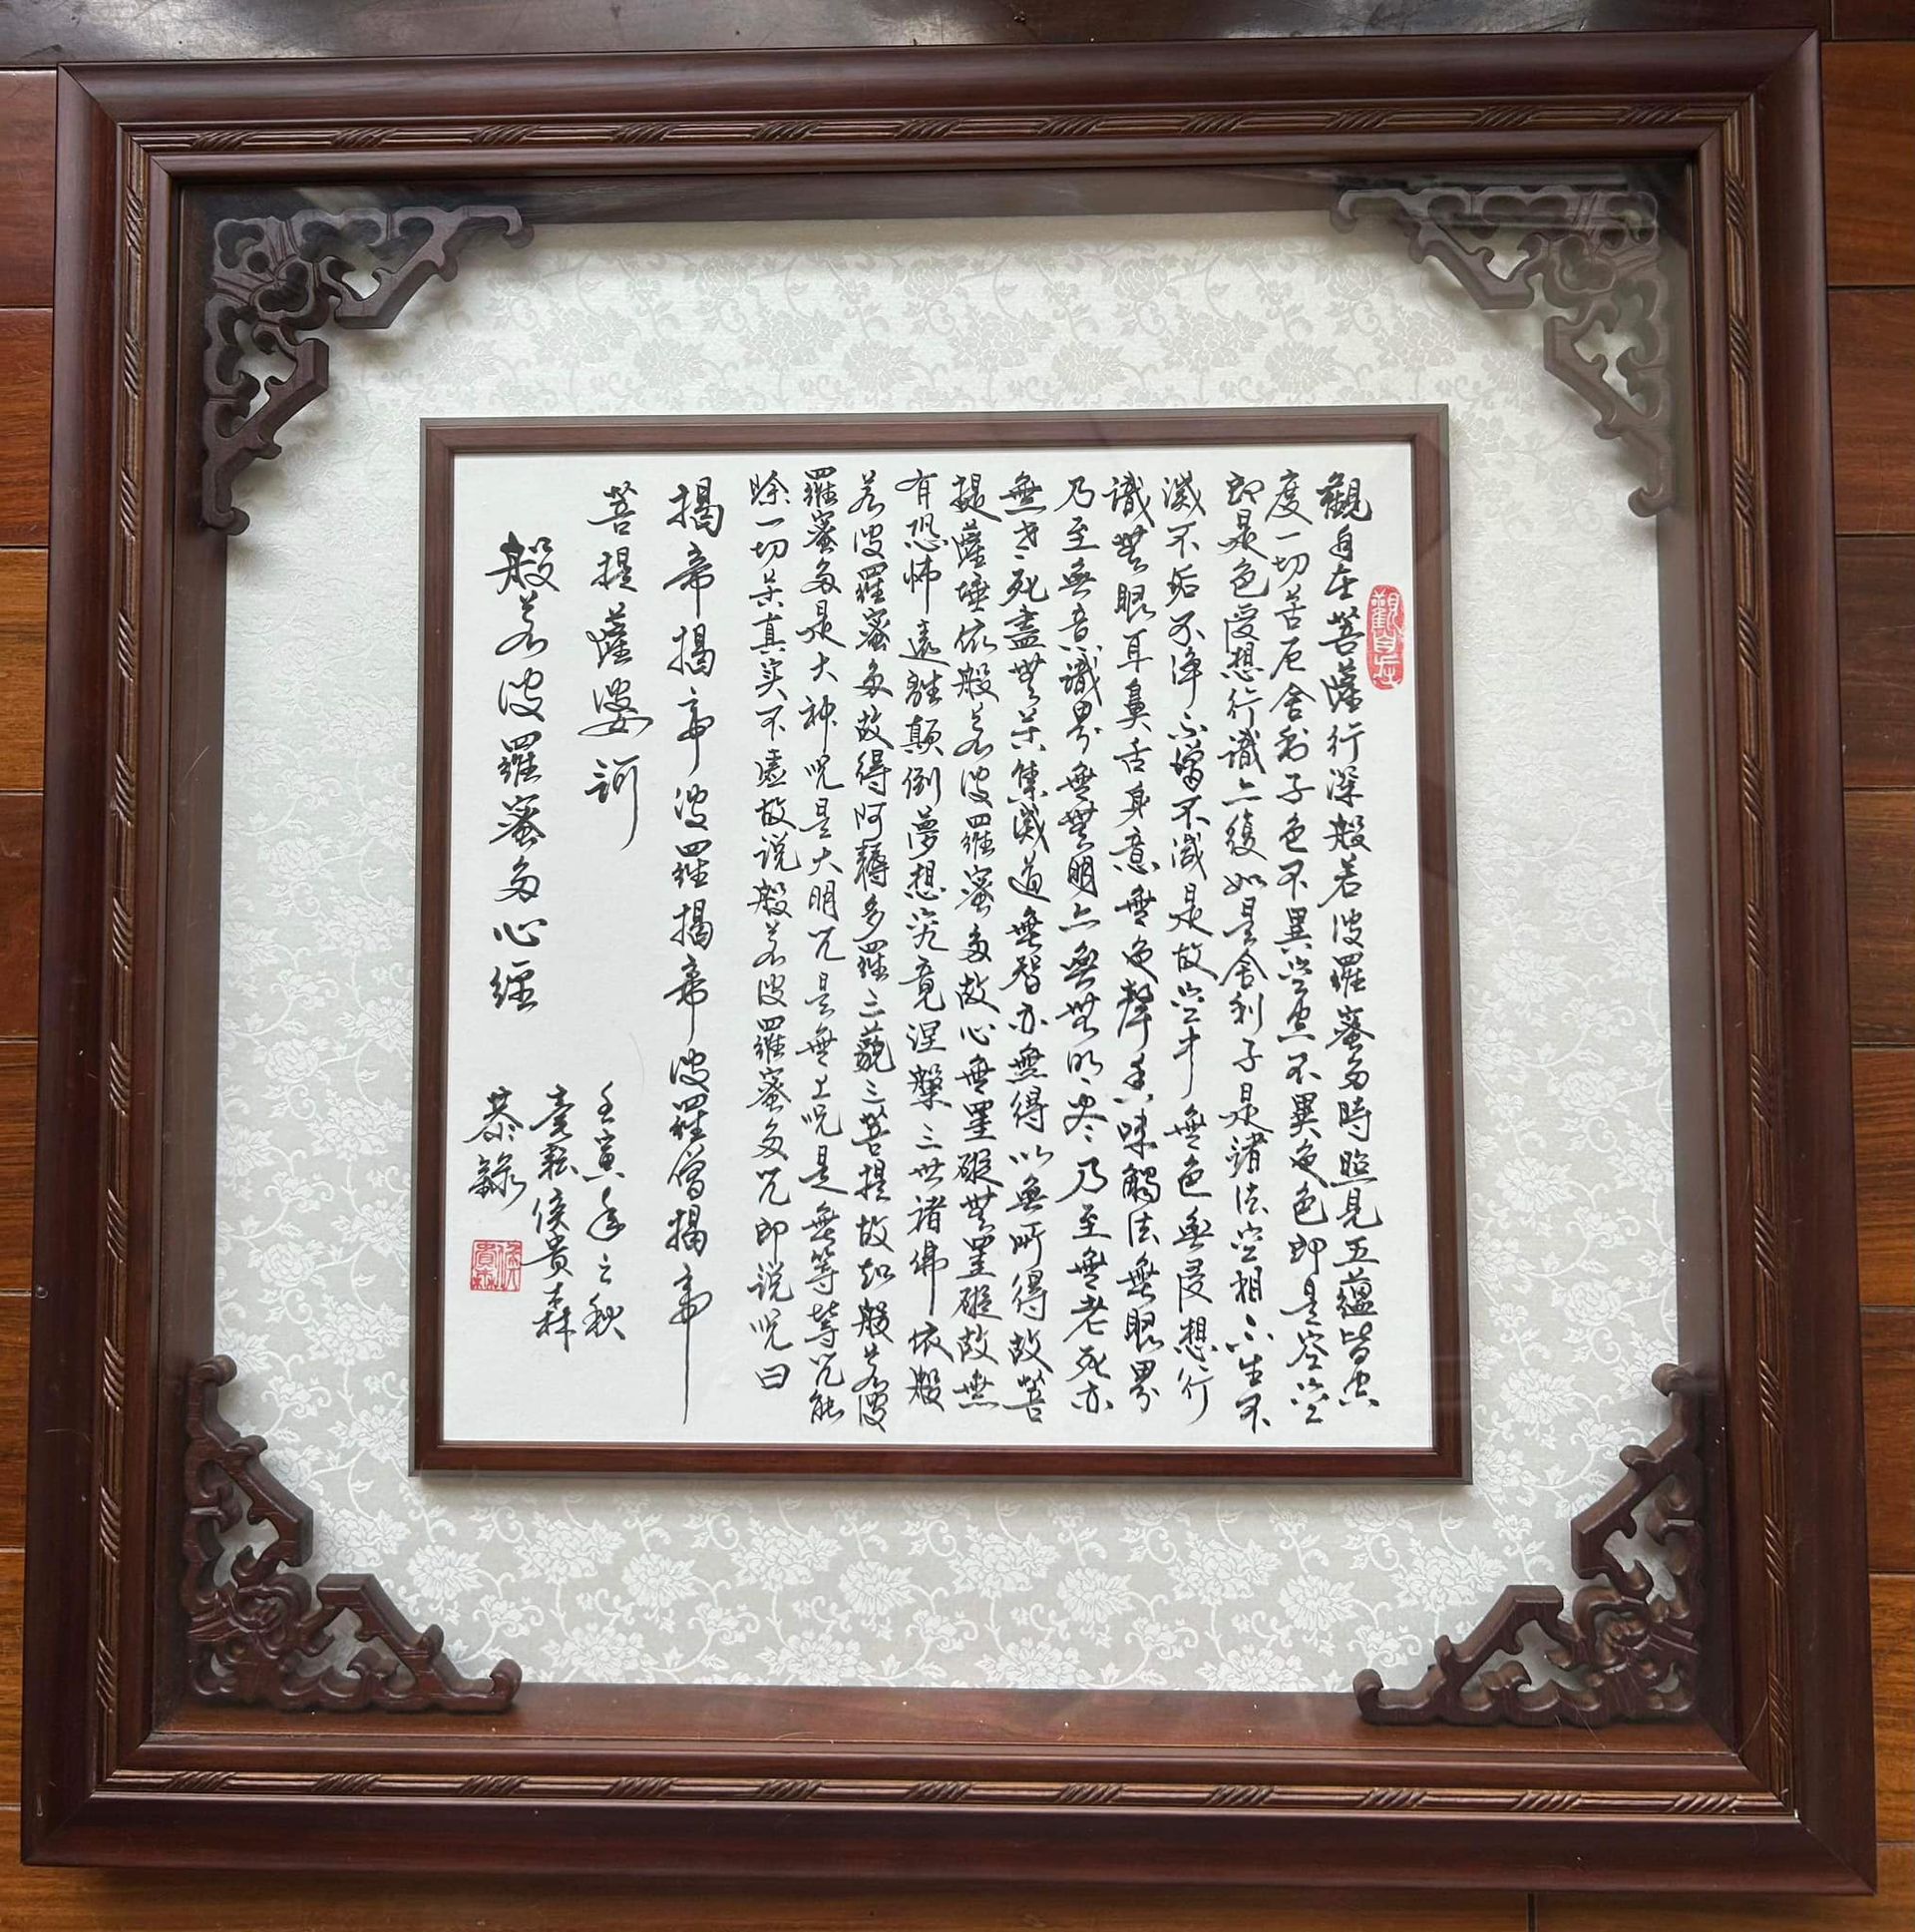 觀自在
觀自在菩薩行深般若波羅蜜多時照見五蘊皆空
度一切苦厄舍利子色不異空空不異色色即是空空
即是色受想行識亦復如是舍利子是諸法空相不生不
滅不垢不淨不增不減是故空中無色無受想行
識無眼耳鼻舌身意無色聲香味觸法無眼界
乃至無意識界無無明亦無無明盡乃至無老死亦
無老死盡無苦集滅道無智亦無得以無所得故菩
提薩埵依般若波羅蜜多故心無罣礙無罣礙故無
有恐怖遠離顛倒夢想究竟涅槃三世諸佛依般
若波羅蜜多故得阿耨多羅三藐三菩提故知般若波
羅蜜多是大神咒是大明咒是無上咒是無等等咒能
除一切苦真实不虛故说般若波羅蜜多咒即说咒曰
揭帝揭帝波羅揭帝波羅僧揭帝
菩提薩婆訶
般若波羅蜜多心經
壬寅年之秋
侯貴森
恭錄